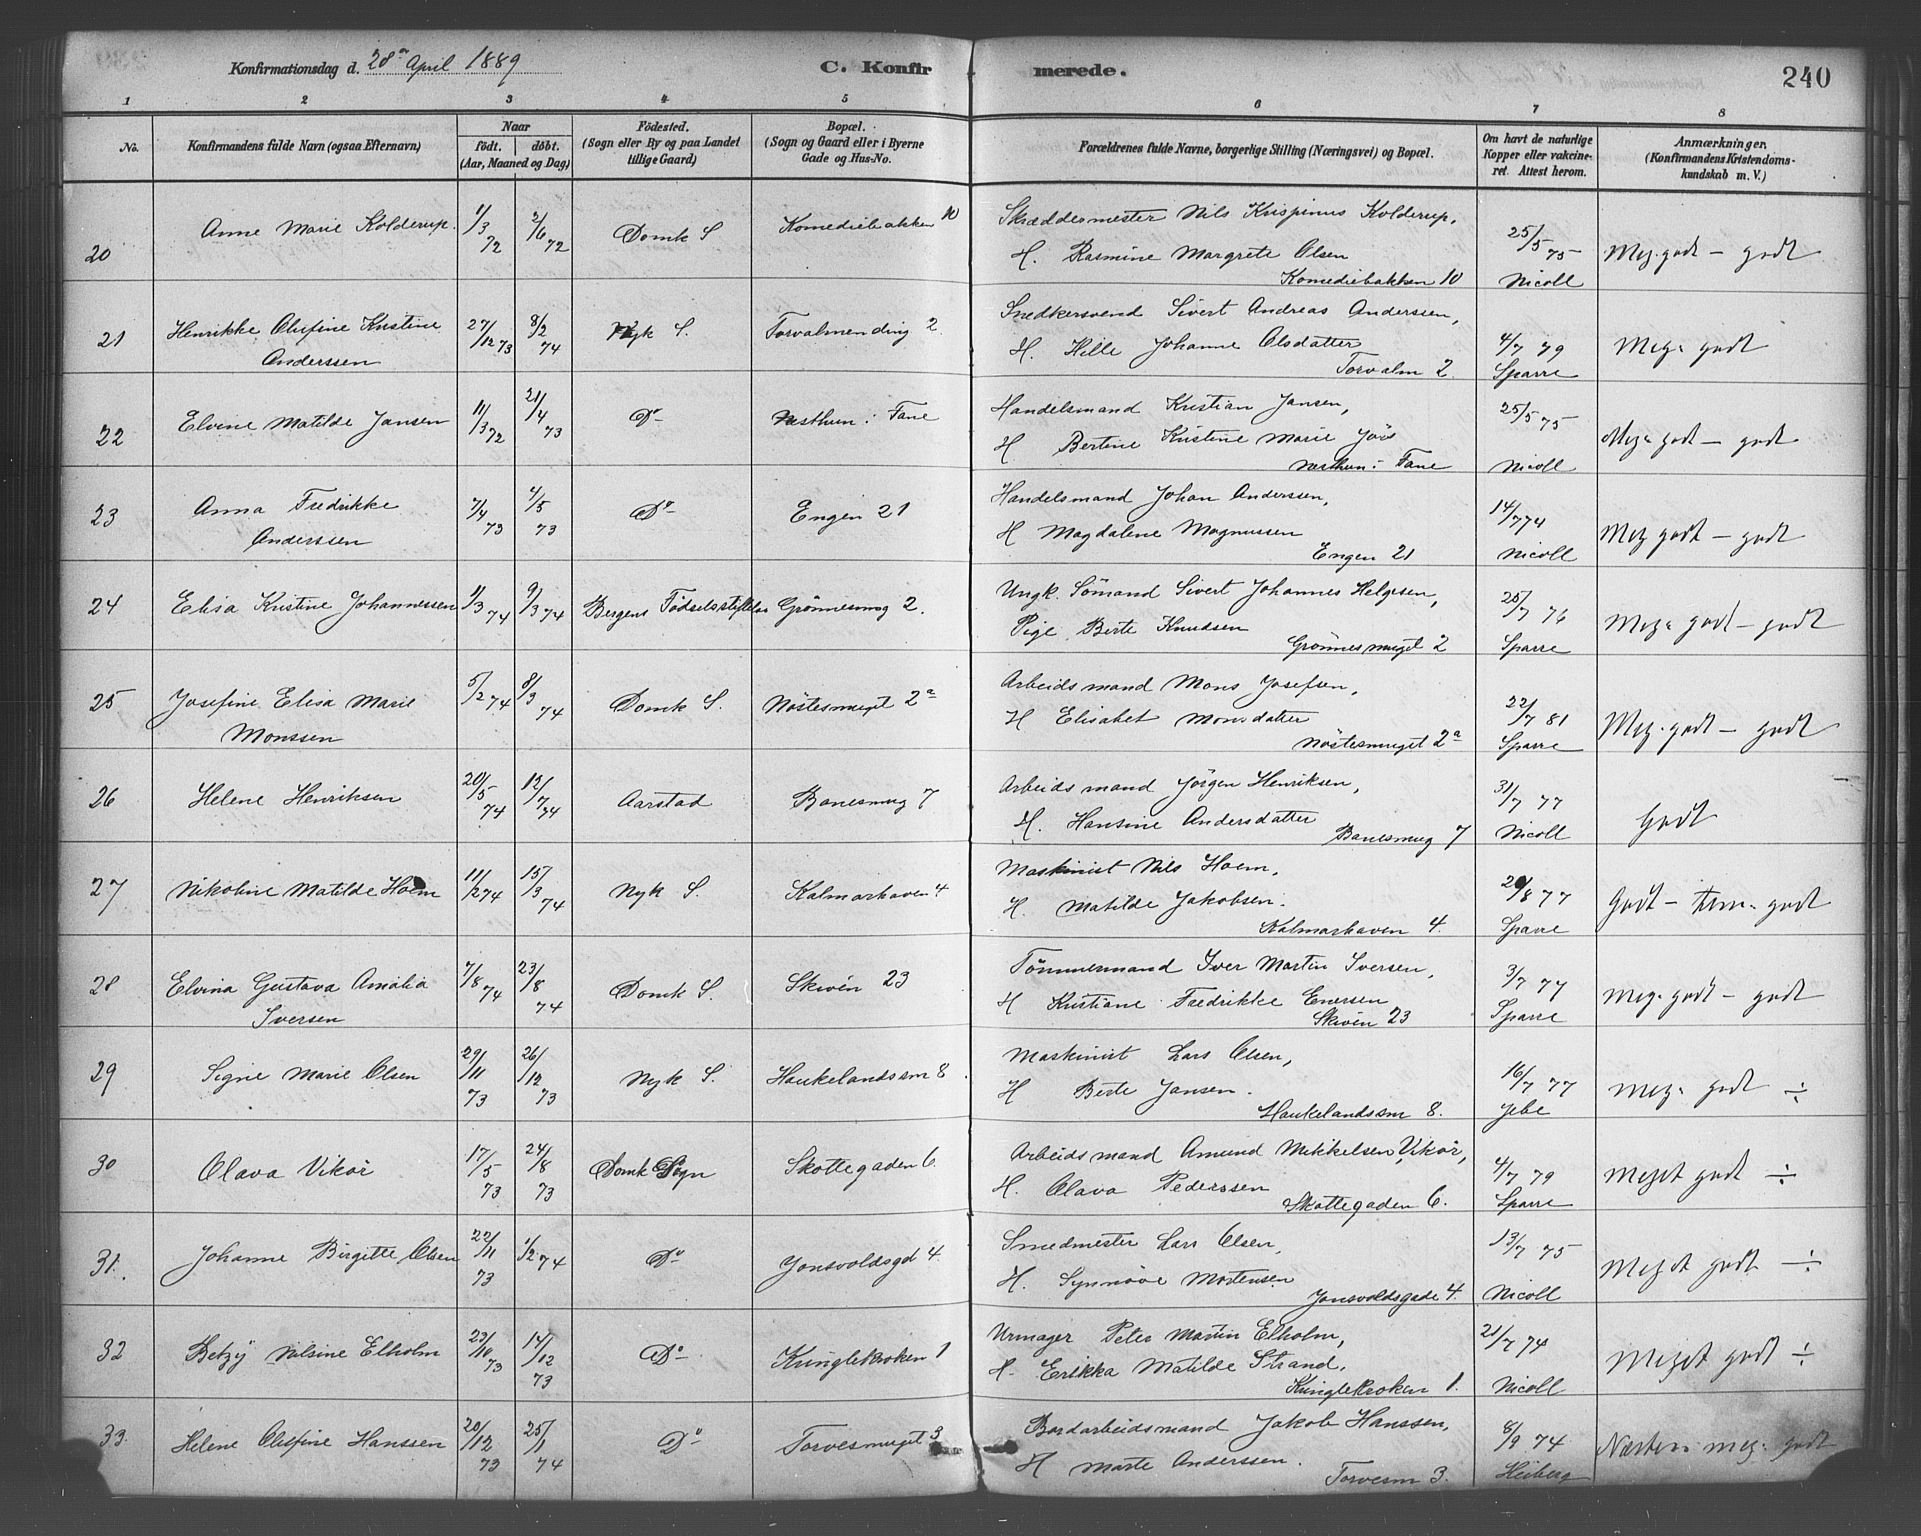 Konfirmationsdag d. 28de April 1889
C. Konfirmerede.
240
1 2 3 4 5 6 7 8
No.
Konfirmandens fulde Navn (ogsaa Efternavn)
Naar
födt. döbt.
(Aar, Maaned og Dag)
Födested.
(Sogn eller By og paa Landet
tillige Gaard)
Bopæl.
(Sogn og Gaard eller i Byerne
Gade og Hus-No.
Forældrenes fulde Navne, borgerlige Stilling (Næringsvei) og Bopæl.
Om havt de naturlige
Kopper eller vakcine-
ret. Attest herom.
Anmærkninger.
(Konfirmandens Kristendoms-
kundskab m. V.)
20 Anne Marie Kolderup. 1/3 72 2/6 72 Domk S Komediebakken 10
Skræddermester Nils Krispinus Kolderup,
H. Rasmine Margrete Olsen
Komediebakken 10
25/5 75 Nicoll
Meg. godt – godt
21 Henrikke Olufine Kristine
Anderssen
27/12 73 8/2 74 Nyk S. Torvalmending 2
Snedkersvend Sivert Andreas Anderssen,
H. Hille Johanne Olsdatter
Torvalm 2.
4/7 79 Sparre
Meg. godt
22 Elvine Matilde Jansen 11/3 72 21/4 73 Do Nesthun i Fane
Handelsmand Kristian Jansen,
H Bertine Kristine Marie
Nesthun i Fane
25/5 75 Nicoll
Meg. godt – godt
23 Anna Fredrikke
Anderssen
7/4 73 4/5 73 Do Engen 21
Handelsmand Johan Anderssen,
H Magdalene Magnussen
Engen 21
14/7 74 Nicoll
Meg godt – godt
24 Elisa Kristine Johannessen 1/3 74 9/3 74 Bergens Födselsstiftelse Grönnesmug 2.
Ungk. Sömand Sivert Johannes Helgesen,
Pige Berte Knudsen
Grönnesmuget 2
25/7 76 Sparre
Meg. godt – godt
25 Josefine Elisa Marie
Monssen
5/2 74 8/3 74 Domk S. Nöstesmuget 2a
Arbeidsmand Mons Josefsen,
H Elisabet Monsdatter
Nöstesmuget 2a
22/7 81 Sparre
Meg. godt – godt
26 Helene Henriksen 20/5 74 12/7 74 Aarstad Banesmug 7
Arbeidsmand Jörgen Henriksen,
H. Hansine Andersdatter
Banesmug 7
31/7 77 Nicoll
Godt
27 Nikoline Matilde Hoem 11/2 74 15/3 74 Nyk S. Kalmarhaven 4
Maskinist Nils Hoem,
H. Matilde Jakobsen.
Kalmarhaven 4.
20/8 77 Sparre
Godt – tem. godt
28 Elvina Gustava Amalia
Iversen
7/8 74 23/8 74 Domk S. Skivén 23
Tömmermand Iver Martin Iversen,
H Kristiane Fredrikke Enersen
Skivén 23
3/7 77 Sparre
Meg. godt – godt
29 Signe Marie Olsen 29/11 73 26/12 73 Nyk S. Haukelandssm 8
Maskinist Lars Olsen,
H Berte Jansen.
Haukelandssm 8.
16/7 77 Jebe
Meg. godt ÷
30 Olava Vikör 17/5 73 24/8 73 Domk Sogn Skottegaden 6
Arbeidsmand Amund Mikkelsen Vikör,
H. Olava Pederssen
Skottegaden 6.
4/7 79 Sparre
Meget godt ÷
31. Johanne Birgitte Olsen 22/11 73 1/2 74 Do Jonsvoldsgd 4.
Smedmester Lars Olsen,
H. Synnöve Mortensen
Jonsvoldsgade 4.
13/7 75 Nicoll
Meget godt ÷
32 Betzÿ Nilsine Elholm 23/10 73 14/12 73 Do Kringlekroken 1
Urmager Peter Martin Elholm,
H. Erikka Matilde Strand.
Kringlekroken 1.
21/7 74 Nicoll
Meget godt ÷
33. Helene Olufine Hanssen 20/12 73 25/1 74 Do Torvesmuget 3
Bordarbeidsmand Jakob Hanssen,
H Marte Anderssen.
Torvesm 3.
8/9 74 Heiberg
Næsten meg. godt